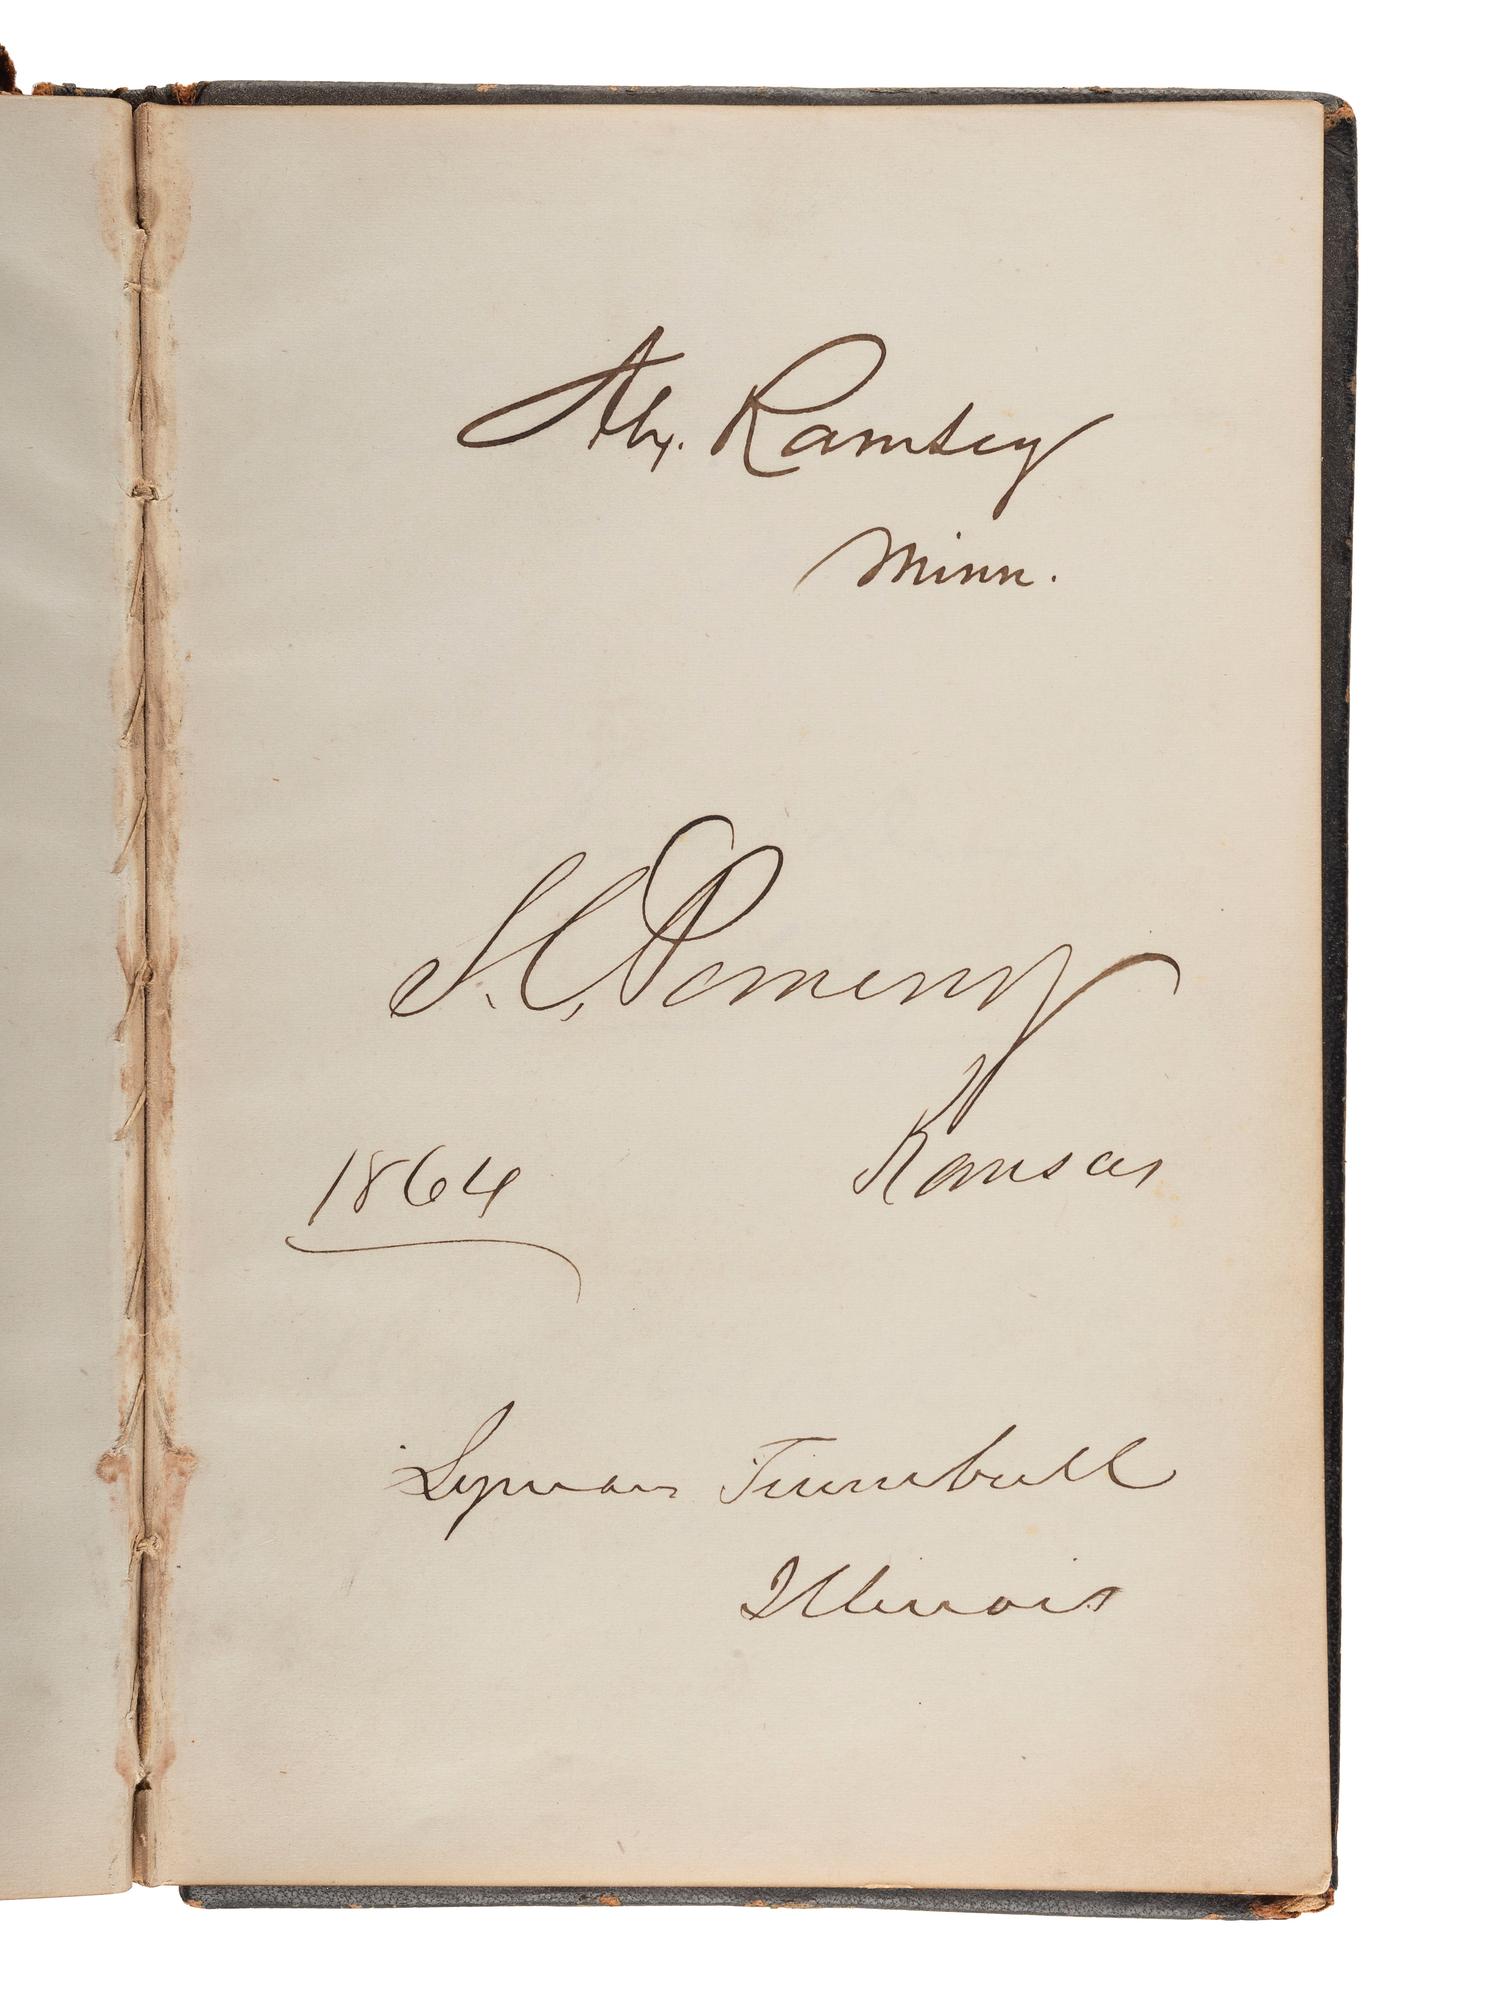 Alex. Ramsey
Minn.
S. C. Pomeroy
Kansas
1864
Lyman Trumbull
Illinois